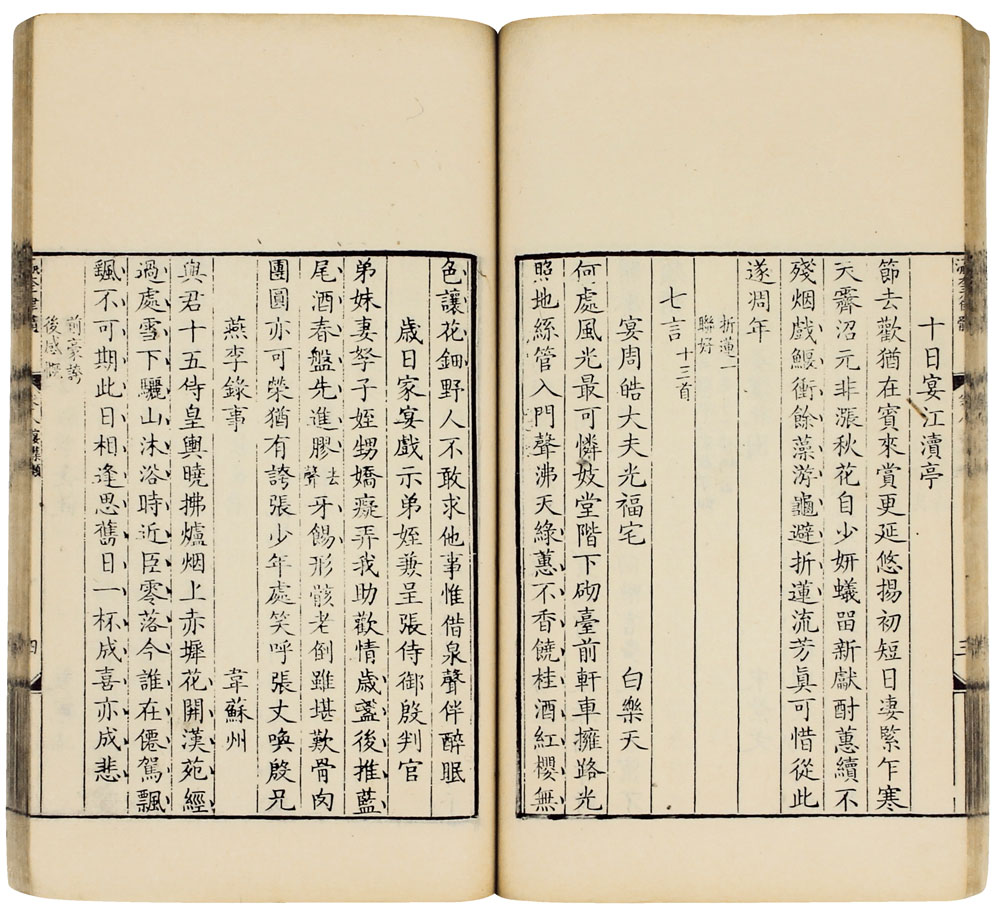 十日宴江瀆亭
節去歡猶在賓來賞更延悠揚初短日凄緊乍寒
天霽沼元非漲秋花自少妍蟻留新獻酎蕙續不
殘烟戲鰋衝餘藻游龜避折蓮流芳眞可惜從此
遂凋年
折蓮一
聯好
七言
十三首
宴周皓大夫光福宅　白樂天
何處風光最可憐妓堂階下砌臺前軒車擁路光
照地絲管入門聲沸天綠蕙不香饒桂酒紅櫻無
三
色讓花鈿野人不敢求他事惟借泉聲伴醉眠
歲日家宴戲示弟姪兼呈張侍御殷判官
弟妹妻孥子姪甥嬌癡弄我助歡情歲盞後推藍
尾酒春盤先進膠去聲牙餳形骸老倒雖堪歎骨肉
團圓亦可榮猶有誇張少年處笑呼張丈喚殷兄
燕李錄事　韋蘇州
與君十五侍皇輿曉拂爐烟上赤墀花開漢苑經
過處雪下驪山沐浴時近臣零落今誰在僊駕飄
飄不可期此日相逢思舊日一杯成喜亦成悲
前豪勢
後感慨
四